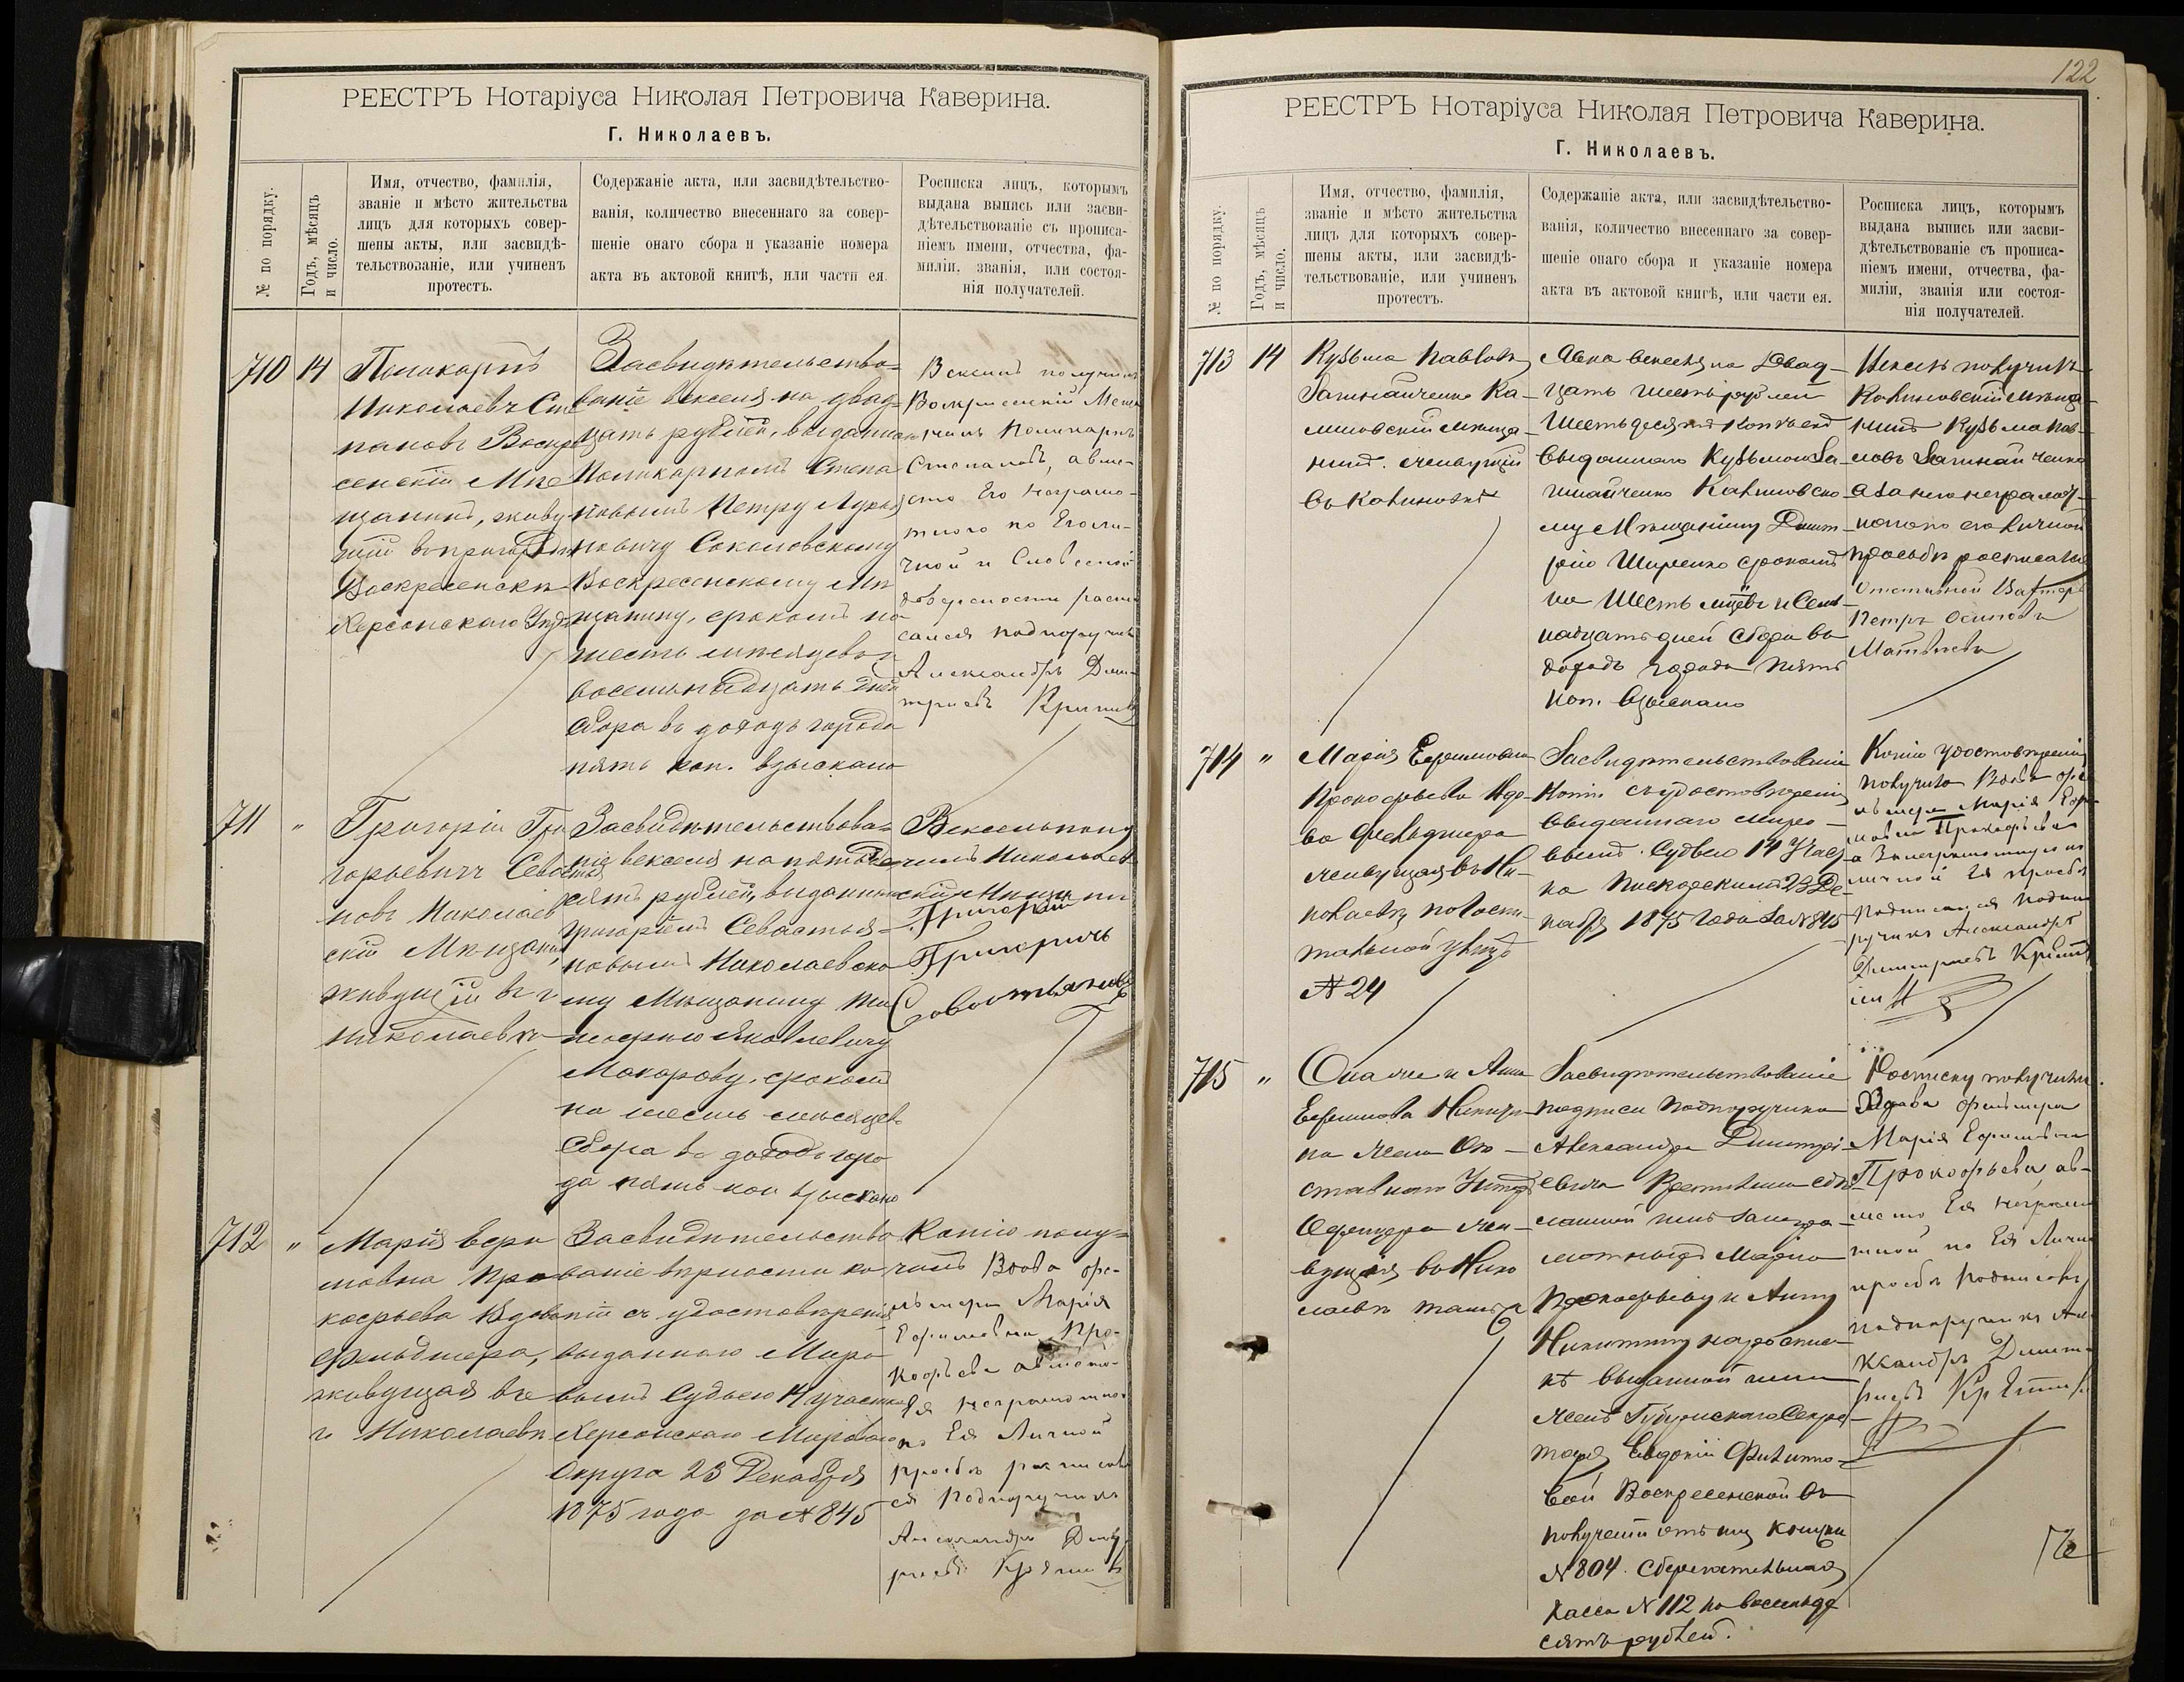 РЕЕСТРЪ Нотаріуса Николая Петровича Каверина.
Г. Николаевъ.
№ по порядку.
Годъ, мѣсяцъ
и число.
Имя, отчество, фамилія,
званіе и мѣсто жительства
лицъ для которыхъ совер-
шены акты, или засвидѣ-
тельствованіе, или учиненъ
протестъ.
Содержаніе акта, или засвидѣтельство-
ванія, количество внесеннаго за совер-
шеніе онаго сбора и указаніе номера
акта въ актовой книгѣ, или части ея.
Росписка лицъ, которымъ
выдана выпись или засви-
дѣтельствованіе съ прописа-
ніемъ имени, отчества, фа-
миліи, званія, или состоя-
нія получателей.
710
14
Поликарпъ
Николаевъ Сте
пановъ Воскре
сенскій Мѣ
щанинъ, живу
щій въ пригородѣ
Воскресенскѣ
Херсонскаго Уѣзда
Засвидѣтельство-
ваніе векселя на двад-
цать рублей, выданна
Поликарпомъ Степа
новымъ Петру
новичу Соколовскому
Воскресенскому Мѣ
щанину, срокомъ на
шесть мѣсяцевъ и
восемнадцать дней
Сбора въ доходъ города
пять коп. взыскано
Вексель получилъ
Воскресенскій Мѣща
нинъ Поликарпъ
Степановъ, а вмѣ-
сто Его неграмо-
тнаго по Его ли-
чной и Словесной
росп
сался подпоручикъ
Александръ Дми-
тріевъ
711
"
Григорій Гри
горьевичъ Севастья
новъ Николаев
скій Мѣщанинъ,
живущій въ г
Николаевѣ
Засвидѣтельствова-
ніе векселя на пятьде
сятъ рублей, выданна
Григоріемъ Севастья-
новымъ Николаевско
му Мѣщанину Ти
мофею Яковлевичу
Макарову, срокомъ
на шесть мѣсяцевъ
Сбора въ доходъ горо
да пять коп взыскано
Вексель полу
чилъ Николаев
скій Мѣщанин
Григорій
Григоричь
Совостьяновъ
712
"
Марія Ефи
мовна Про
кофьева Вдова
Фельдшера,
живущая въ
г. Николаевѣ
Засвидѣтельство
ваніе вѣрности ко
піи съ удостовѣренія
выданнаго Миро
вымъ Судьею 14 участка
Херсонскаго Мироваго
Округа 23 Декабря
1875 года за № 845
Копію полу-
чилъ Вдова фе-
льшера Марія
Ефимовна Про-
кофьева а вмѣсто
Ея неграмотной
по Ея Личной
просьбѣ росписал
ся Подпоручикъ
Александръ Дмит
ріевъ
122
РЕЕСТРЪ Нотаріуса Николая Петровича Каверина.
Г. Николаевъ.
№ по порядку.
Годъ, мѣсяцъ
и число.
Имя, отчество, фамилія,
званіе и мѣсто жительства
лицъ для которыхъ совер-
шены акты, или засвидѣ-
тельствованіе, или учиненъ
протестъ.
Содержаніе акта, или засвидѣтельство-
ванія, количество внесеннаго за совер-
шеніе онаго сбора и указаніе номера
акта въ актовой книгѣ, или части ея.
Росписка лицъ, которымъ
выдана выпись или засви-
дѣтельствованіе съ прописа-
ніемъ имени, отчества, фа-
миліи, званія или состоя-
нія получателей.
713
14
Кузьма Павловъ
Ка-
линовскій мѣща-
нинъ. живущій
въ Калиновкѣ
Явка векселя на Двад-
цать шесть рублей
Шестьдесятъ копѣекъ
выданнаго Кузьмою
Калиновско
му Мѣщанину Дмит-
рію Ширенко срокомъ
на Шесть мцевъ и Сем-
надцать дней Сбора въ
доходъ города пять
коп. взыскано
Вексель получилъ
Калиновскій мѣща-
нинъ Кузьма Пав-
ловъ
а за него неграмот-
наго по его личной
просьбѣ росписался
Отставной
Петръ Осиповъ
Матвѣевъ
714
"
Марія Ефимовна
Прокофьева Вдо-
ва Фельдшера
живущая въ Ни-
колаевѣ по Госпи-
тальной улицѣ
№ 24
Засвидѣтельствованіе
Копіи съ удостовѣренія
выданнаго Миро-
вымъ Судьею 14 Учас
ка 23 Де-
кабря 1875 года за № 845
Копію удостовѣренія
получила Вдова фе
льшера Марія Ефи-
мовна Прокофьева
а За неграмотную по
личной Ея просьбѣ
Подписался Подпо
ручикъ Александръ
Дмитріевъ
715
"
Она же и Анна
Ефимова Никити-
на жена От-
ставного Унтеръ
Офицера жи-
вущая въ Нико
лаевѣ тамже
Засвидѣтельствованіе
подписи Подпоручика
Александра Дмитрі-
евича сдѣ-
ланной имъ за негра-
мотныхъ Марію
Прокофьеву и Анну
Никитину на роспис-
кѣ выданной ими
женѣ Губернскаго Секре-
таря Евдокіи Филиппо-
вой Воскресенской въ
полученіи отъ нея книжки
№ 804. Сберегательная
Касса № 112 на восемьде
сятъ рублей.
Росписку получили
Вдова фельшера
Марія Ефимовна
Прокофьева, а в-
мѣсто Ея неграмо
тной по Ея Личной
просьбѣ Подписалъ
подпоручикъ Але
ксандръ Дмит
ріевъ